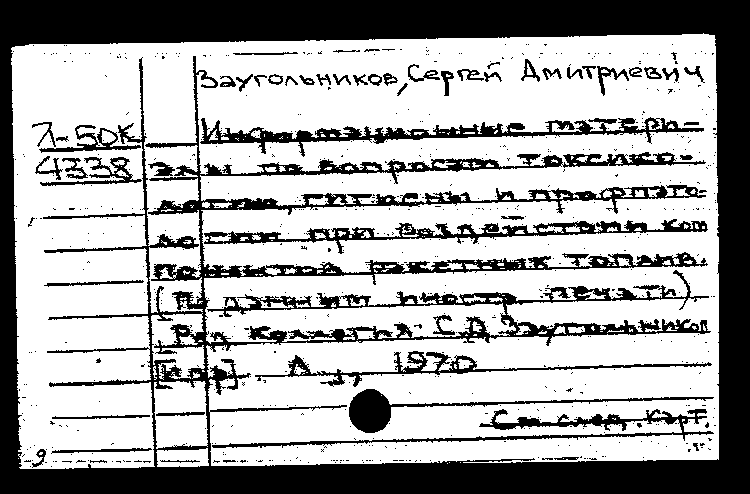 Заугольников, Сергей Дмитриевич
Л-50К Информационные матери-
4338 алы по вопросам токсико-
логии, гигиены и профпато-
логии при воздействии ком
понентов ракетных топлив.
(По данным иностр. печати).
Ред. коллегия: С.Д. Заугольников
[и др]. Л., 1970
См. след. карт.
9